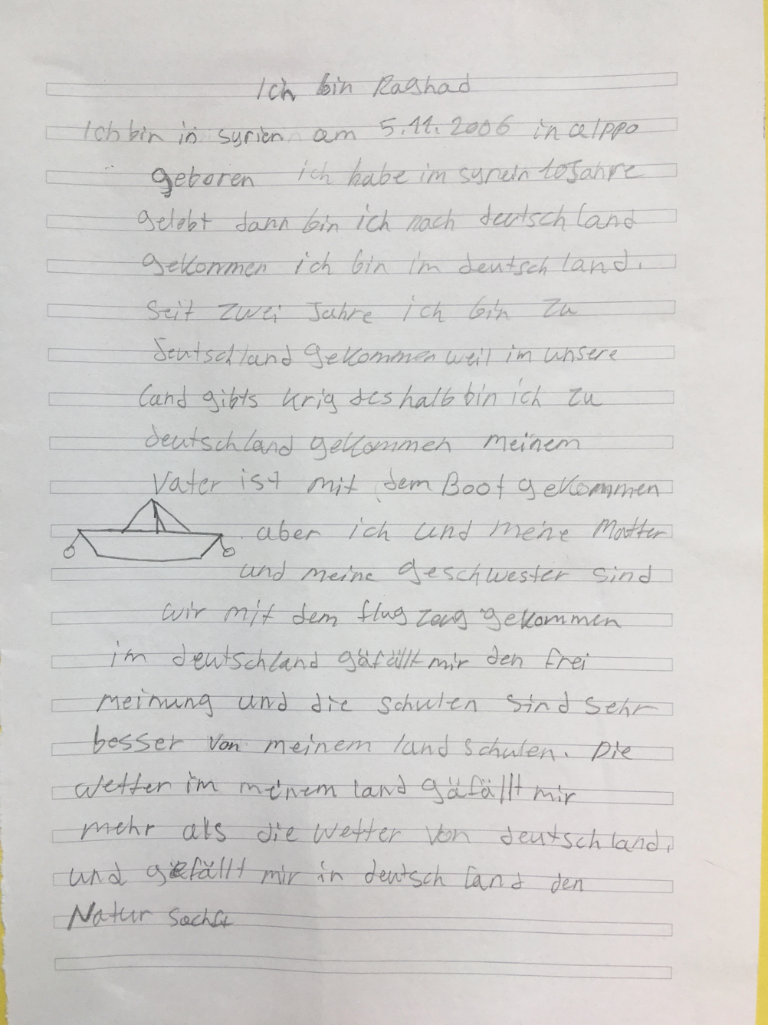 Ich bin Raghad
Ich bin in syrien am 5.11.2006 in alppo
geboren ich habe im syrein 10 Jahre
gelebt dann bin ich nach deutschland
gekommen ich bin im deutschland.
seit zwei Jahre ich bin zu
deutschland gekommen weil im unsere
land gibts krig deshalb bin ich zu
deutschland gekommen meinem
Vater ist mit dem Boot gekommen
aber ich und meine Motter
und meine geschwester sind
wir mit dem flugzeug gekommen
im deutschland gäfällt mir den frei
meinung und die schulen sind sehr
besser von meinem land schulen. Die
wetter im meinem land gäfällt mir
mehr als die wetter von deutschland.
und gefällt mir in deutschland den
Natur